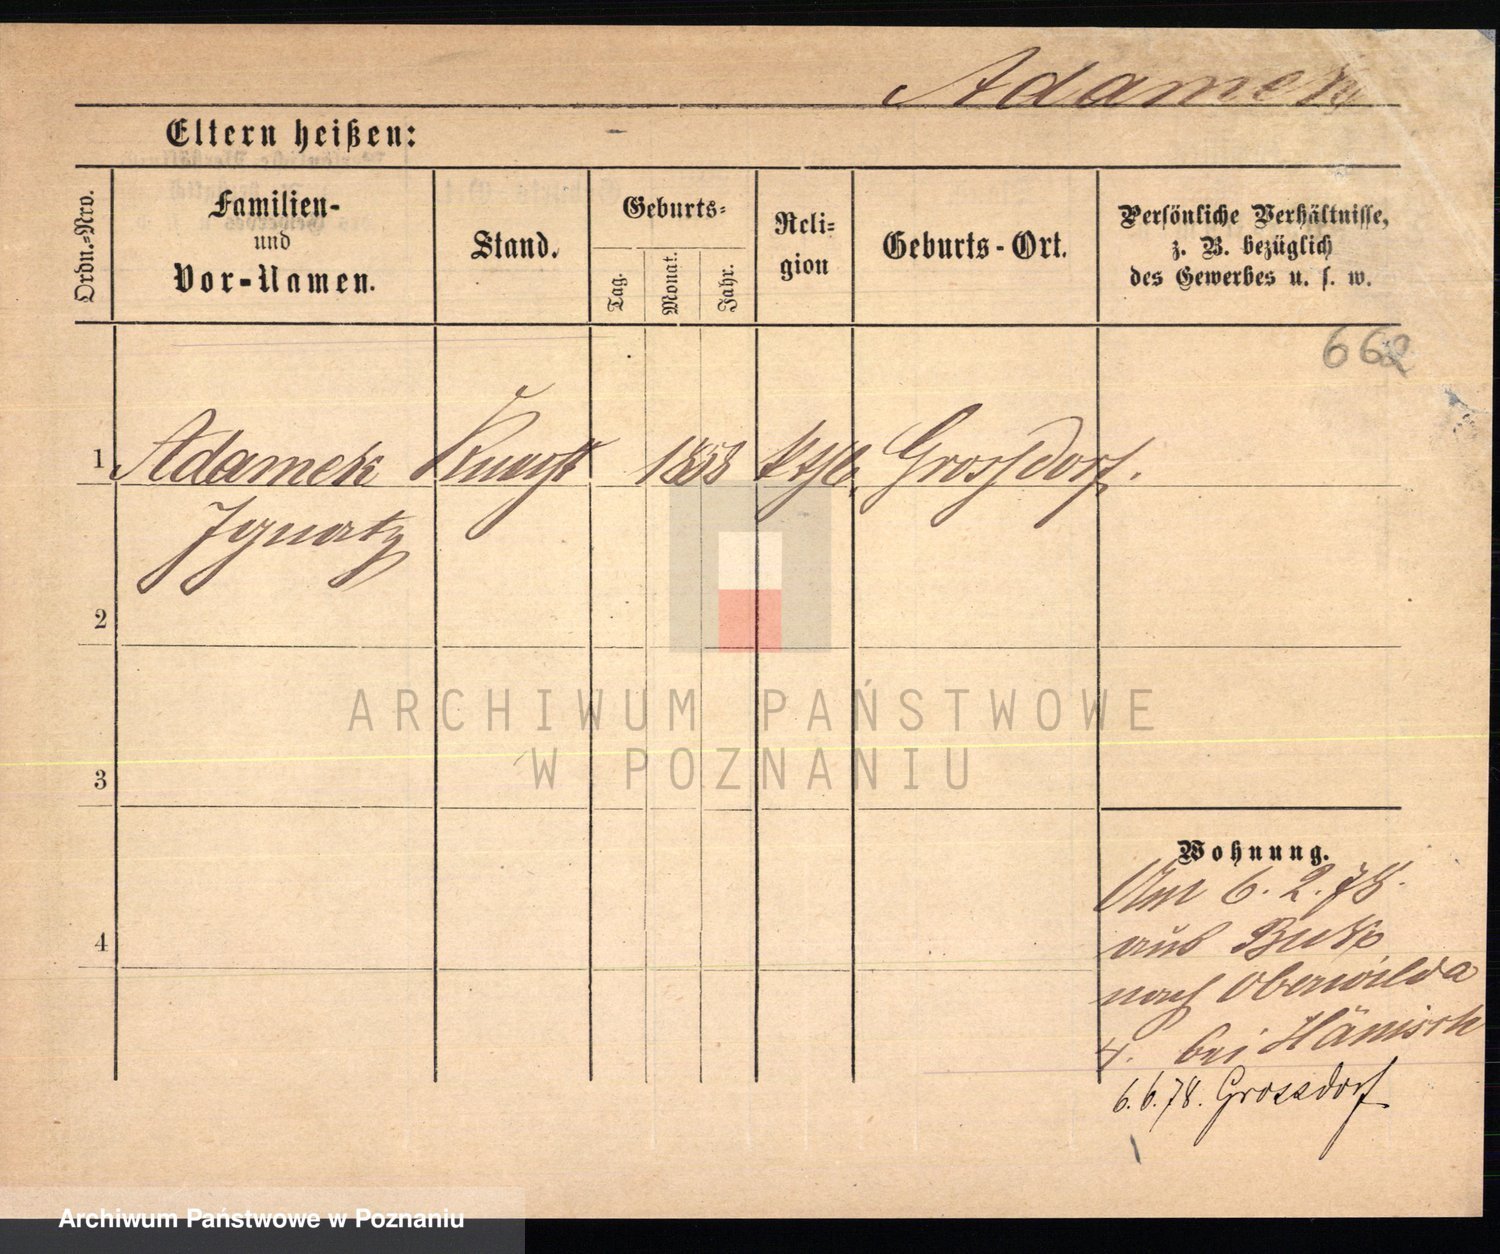 Adamek
Eltern heißen: –
Ordn.-Nro.
Familien-
und
Vor-Namen.
Stand.
Geburts-
Tag.
Monat.
Jahr.
Reli-
gion
Geburts-Ort.
Persönliche Verhältnisse,
z. B. bezüglich
des Gewerbes u. s. w.
662
1 Adamek Knecht 1858 kth. Grossdorf.
Ignatz
2
3
4
Wohnung.
Am 6. 2. 78.
aus Buk
nach Oberwilda
4. bei Hänisch
6. 6. 78. Grossdorf
ARCHIWUM PAŃSTWOWE
W POZNANIU
Archiwum Państwowe w Poznaniu